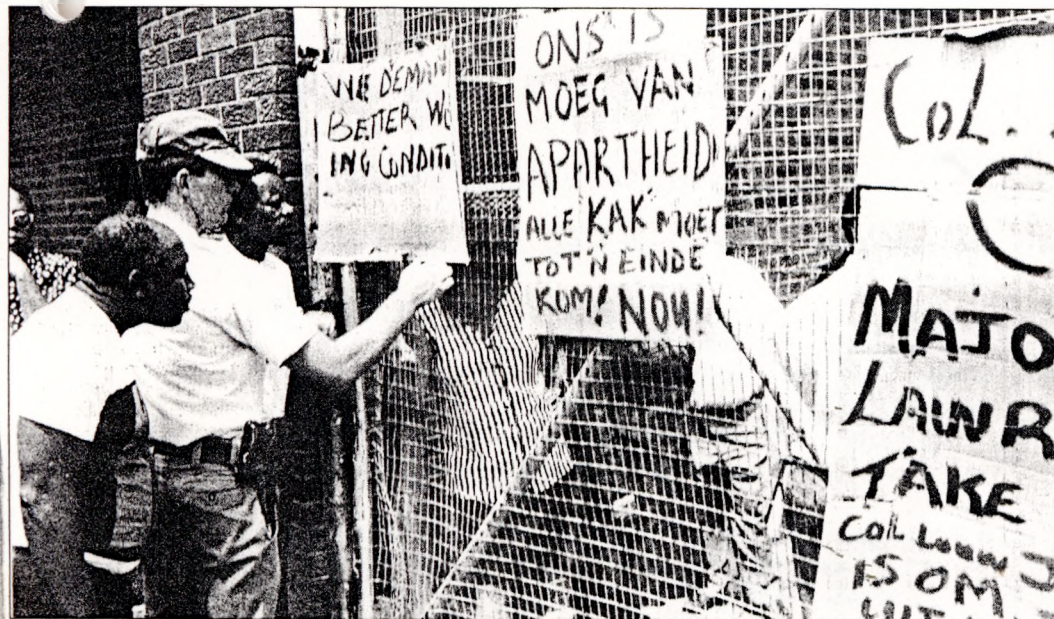 WE DEMAN
BETTER WO
ING CONDITI
ONS IS
MOEG VAN
APARTHEID!
ALLE KAK MOET
TOT 'N EINDE
KOM! NOU!
COL..
MAJO
LAWR
TAKE
IS OM